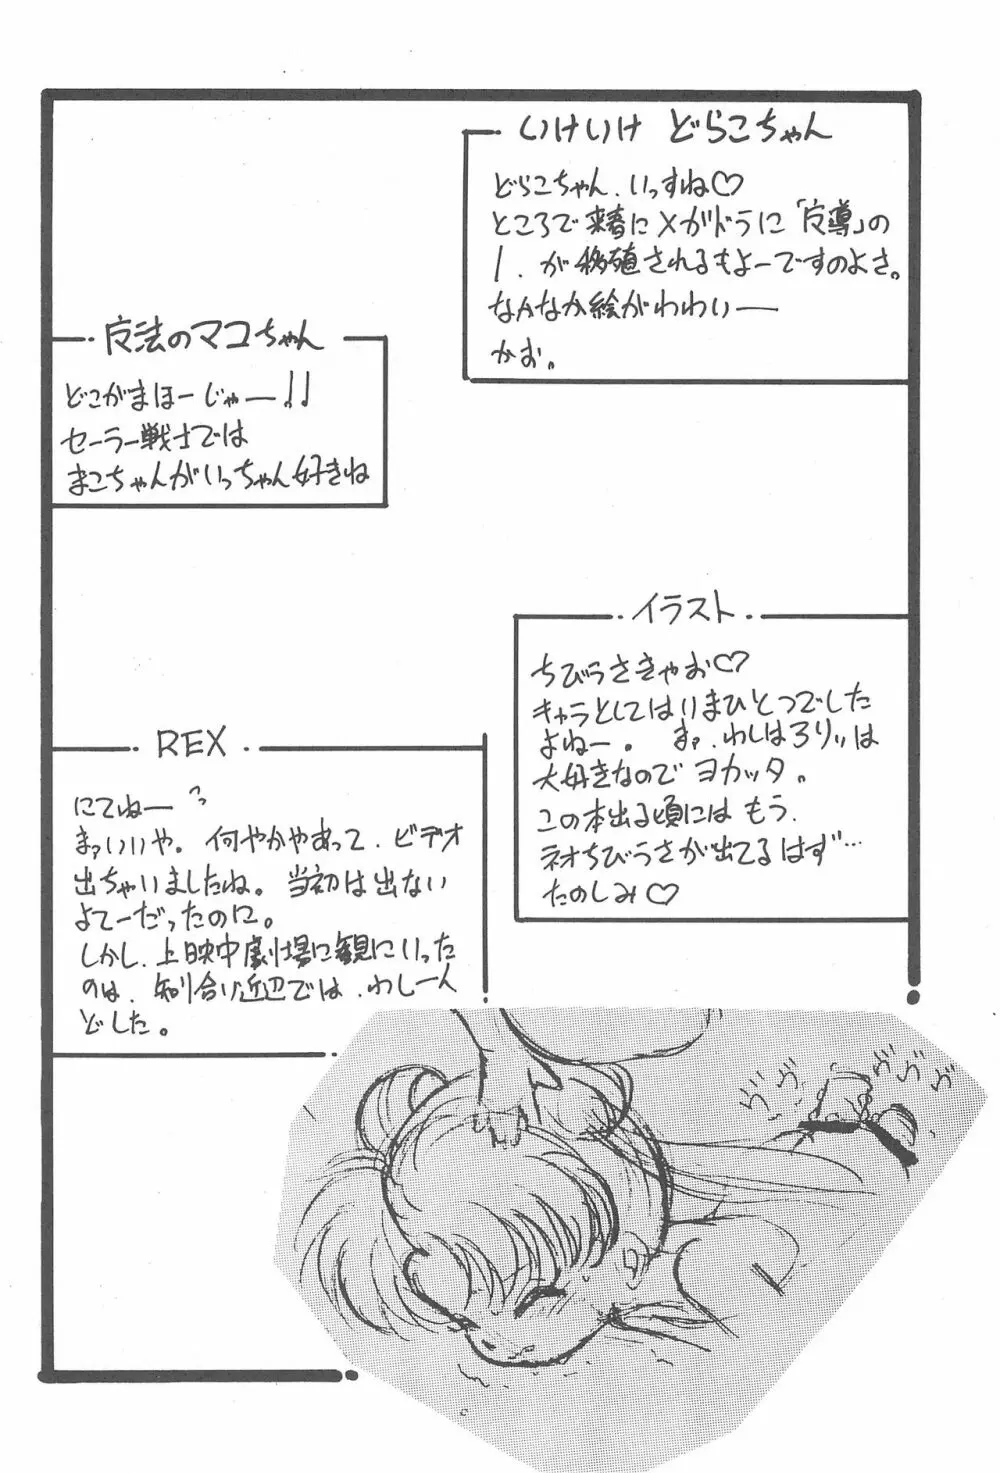 いけいけ どらこちゃん
どらこちゃん、いっすね♡
ところで来春にメガドラに「魔導」の
1、が移殖されるもよーですのよさ。
なかなか絵がわわいー
かお。
魔法のマコちゃん
どこがまほーじゃー!!
セーラー戦士では
まこちゃんがいっちゃん好きね
イラスト
ちびうさきゃお♡
キャラとしてはいまひとつでした
よねー。まァ、わしはろりぃは
大好きなのでヨカッタ。
この本出る頃にはもう、
ネオちびうさが出てるはず…
たのしみ♡
REX
にてねーっ
まァいいや。何やかやあって、ビデオ
出ちゃいましたね。当初は出ない
よてーだったのに。
しかし、上映中劇場に観にいった
のは、知り合い近辺では、わし一人
でした。
ヴヴ
ヴヴヴ